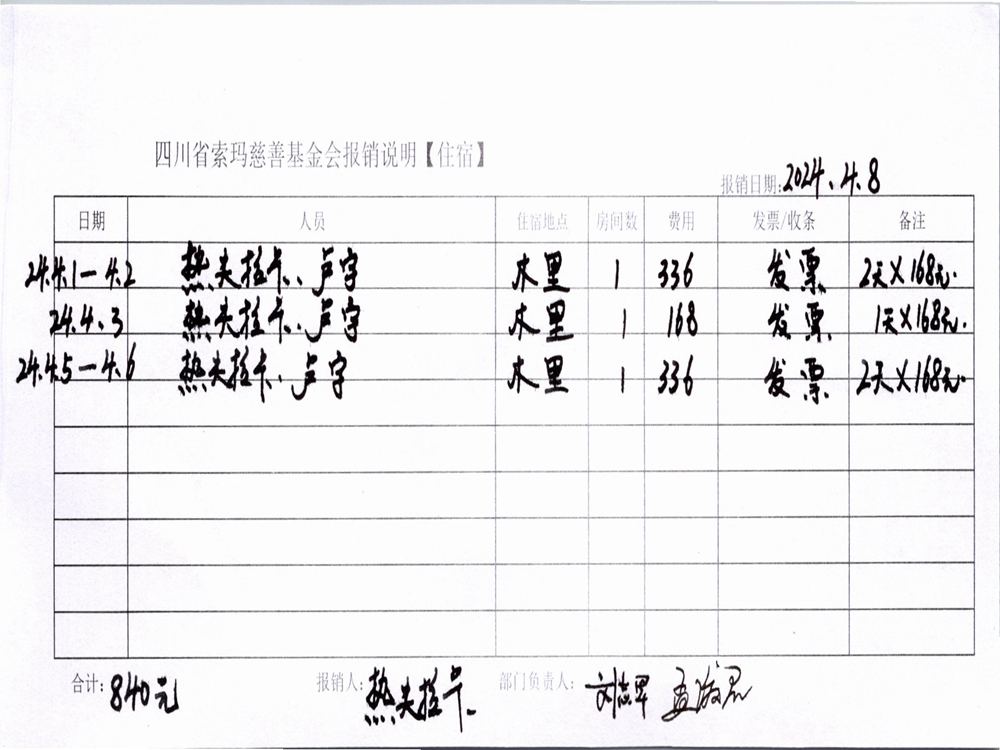 四川省索玛慈善基金会报销说明【住宿】
报销日期:2024.4.8
日期 人员 住宿地点 房间数 费用 发票/收条 备注
24.4.1—4.2 热夫拉卡、卢宇 木里 1 336 发票 2天×168元.
24.4.3 热夫拉卡、卢宇 木里 1 168 发票 1天×168元.
24.4.5—4.6 热夫拉卡、卢宇 木里 1 336 发票 2天×168元.
合计:840元 报销人:热夫拉卡 部门负责人: